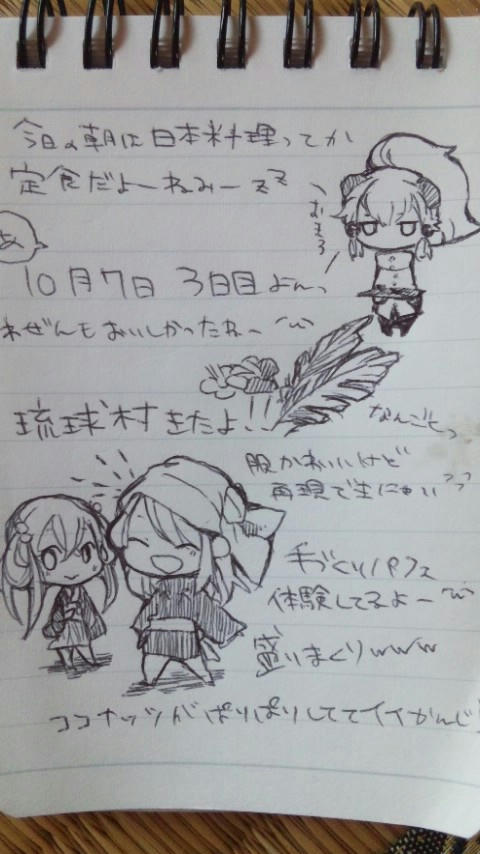 今日の朝は日本料理ってか
定食だよーねみーzz
おきろ
あ
10月7日 3日目よんっ
れぜんもおいしかったねー
琉球村きたよ!!
なんごくっ
服かわいいけど
再現で
手づくりパフェ
体験してるよー
盛りまくりwww
ココナッツがぱりぱりしててイイかんじ!